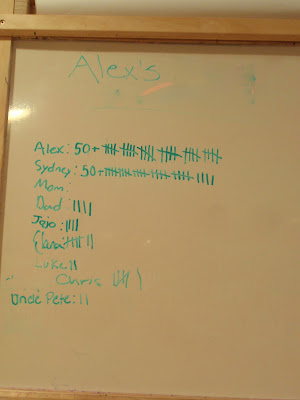 Alex's
Alex: 50+ 卌 卌 卌 卌 卌 卌
Sydney: 50+ 卌 卌 卌 卌 卌 ||||
Mom:
Dad: ||||
Jojo: ||||
Elana: 卌 ||
Luke: ||
Chris 卌 |
Uncle Pete: ||